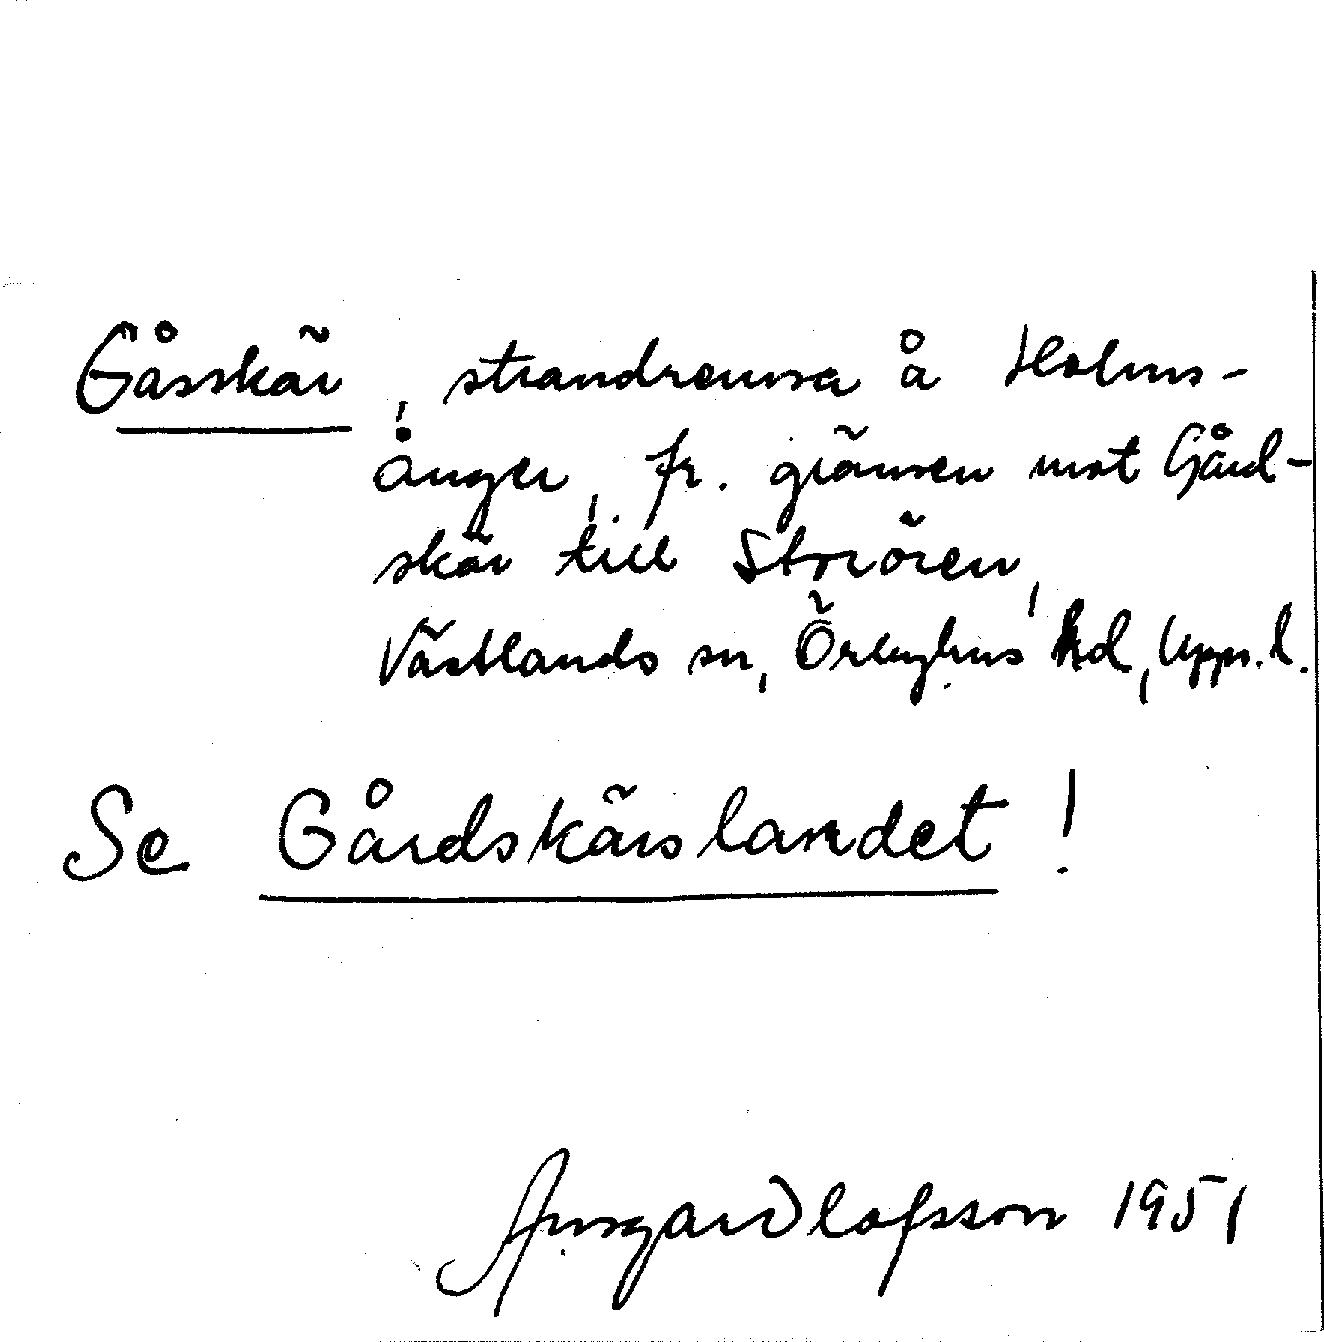 Gåsskär, strandremsa å Holms-
änger, fr. gränsen mot Gård-
skär till Storören,
Västlands sn, Örbyhus hd, Upps. l.
Se Gårdskärslandet!
Olofsson 1951